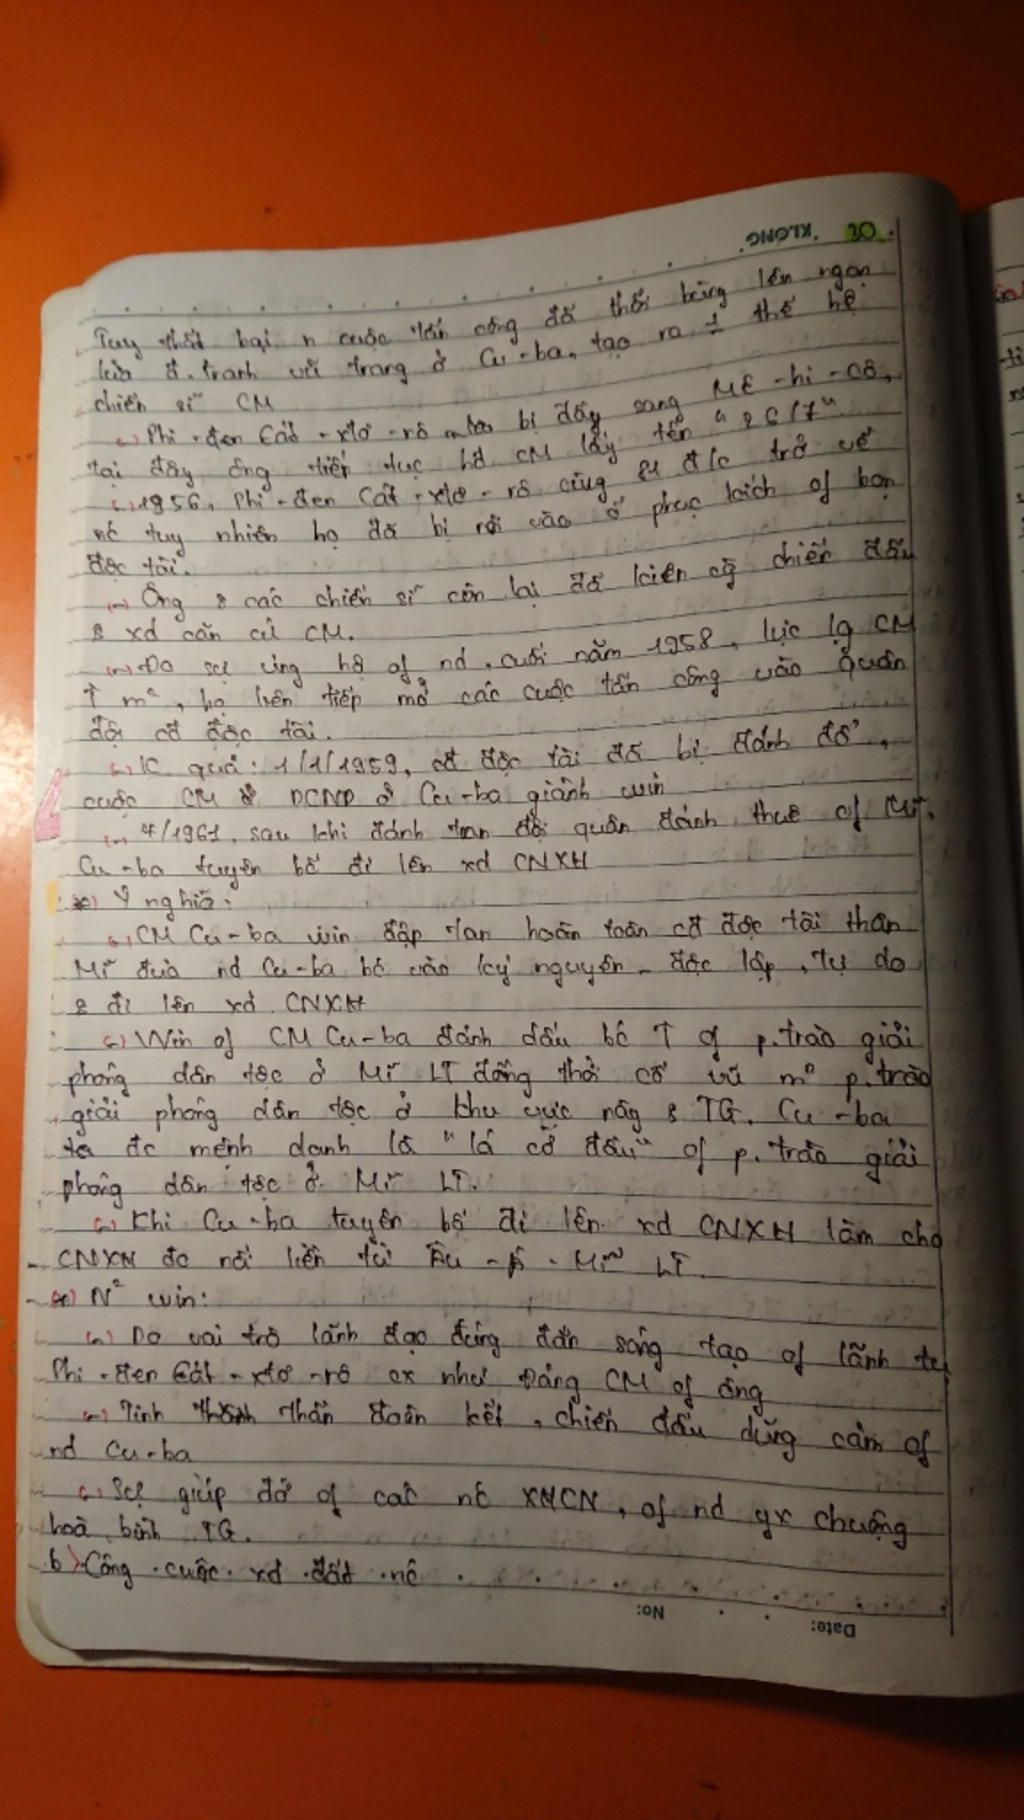 KLONG 20
Tuy thất bại n cuộc tấn công đã thổi bùng lên ngọn
lửa đ.tranh vũ trang ở Cu-ba, tạo ra 1 thế hệ
chiến sĩ CM
Phi-đen Cát-xtơ-rô bị đẩy sang Mê-hi-cô,
tại đây ông tiếp tục hđ CM lấy tên "26/7"
1956, Phi-đen Cát-xtơ-rô cùng 81 đ/c trở về
nc tuy nhiên họ đã bị rơi vào ổ phục kích of bọn
độc tài.
Ông & các chiến sĩ còn lại đã kiên cg chiến đấu
& xd căn cứ CM.
Do sự ủng hộ of nd, cuối năm 1958, lực lg CM
↑ m², họ liên tiếp mở các cuộc tấn công vào quân
đội cđ độc tài.
K quả: 1/1/1959, cđ độc tài đã bị đánh đổ,
cuộc CM DCND ở Cu-ba giành win
4/1961, sau khi đánh tan đội quân đánh thuê of Mĩ,
Cu-ba tuyên bố đi lên xd CNXH
*) Ý nghĩa:
CM Cu-ba win đập tan hoàn toàn cđ độc tài thân
Mĩ đưa nd Cu-ba bc vào kỷ nguyên độc lập, tự do
& đi lên xd CNXH
Win of CM Cu-ba đánh dấu bc ↑ of p.trào giải
phóng dân tộc ở Mĩ LT đồng thời cổ vũ m² p.trào
giải phóng dân tộc ở khu vực này & TG. Cu-ba
đc mệnh danh là "lá cờ đầu" of p.trào giải
phóng dân tộc ở Mĩ LT.
Khi Cu-ba tuyên bố đi lên xd CNXH làm cho
CNXH đc nối liền từ Âu - Á - Mĩ LT.
*) N² win:
Do vai trò lãnh đạo đúng đắn sáng tạo of lãnh tụ
Phi-đen Cát-xtơ-rô cx như Đảng CM of ông
Tinh thần đoàn kết, chiến đấu dũng cảm of
nd Cu-ba
Sự giúp đỡ of các nc XHCN, of nd yx chuộng
hoà bình TG.
b) Công cuộc xd đất nc
No:
Date: